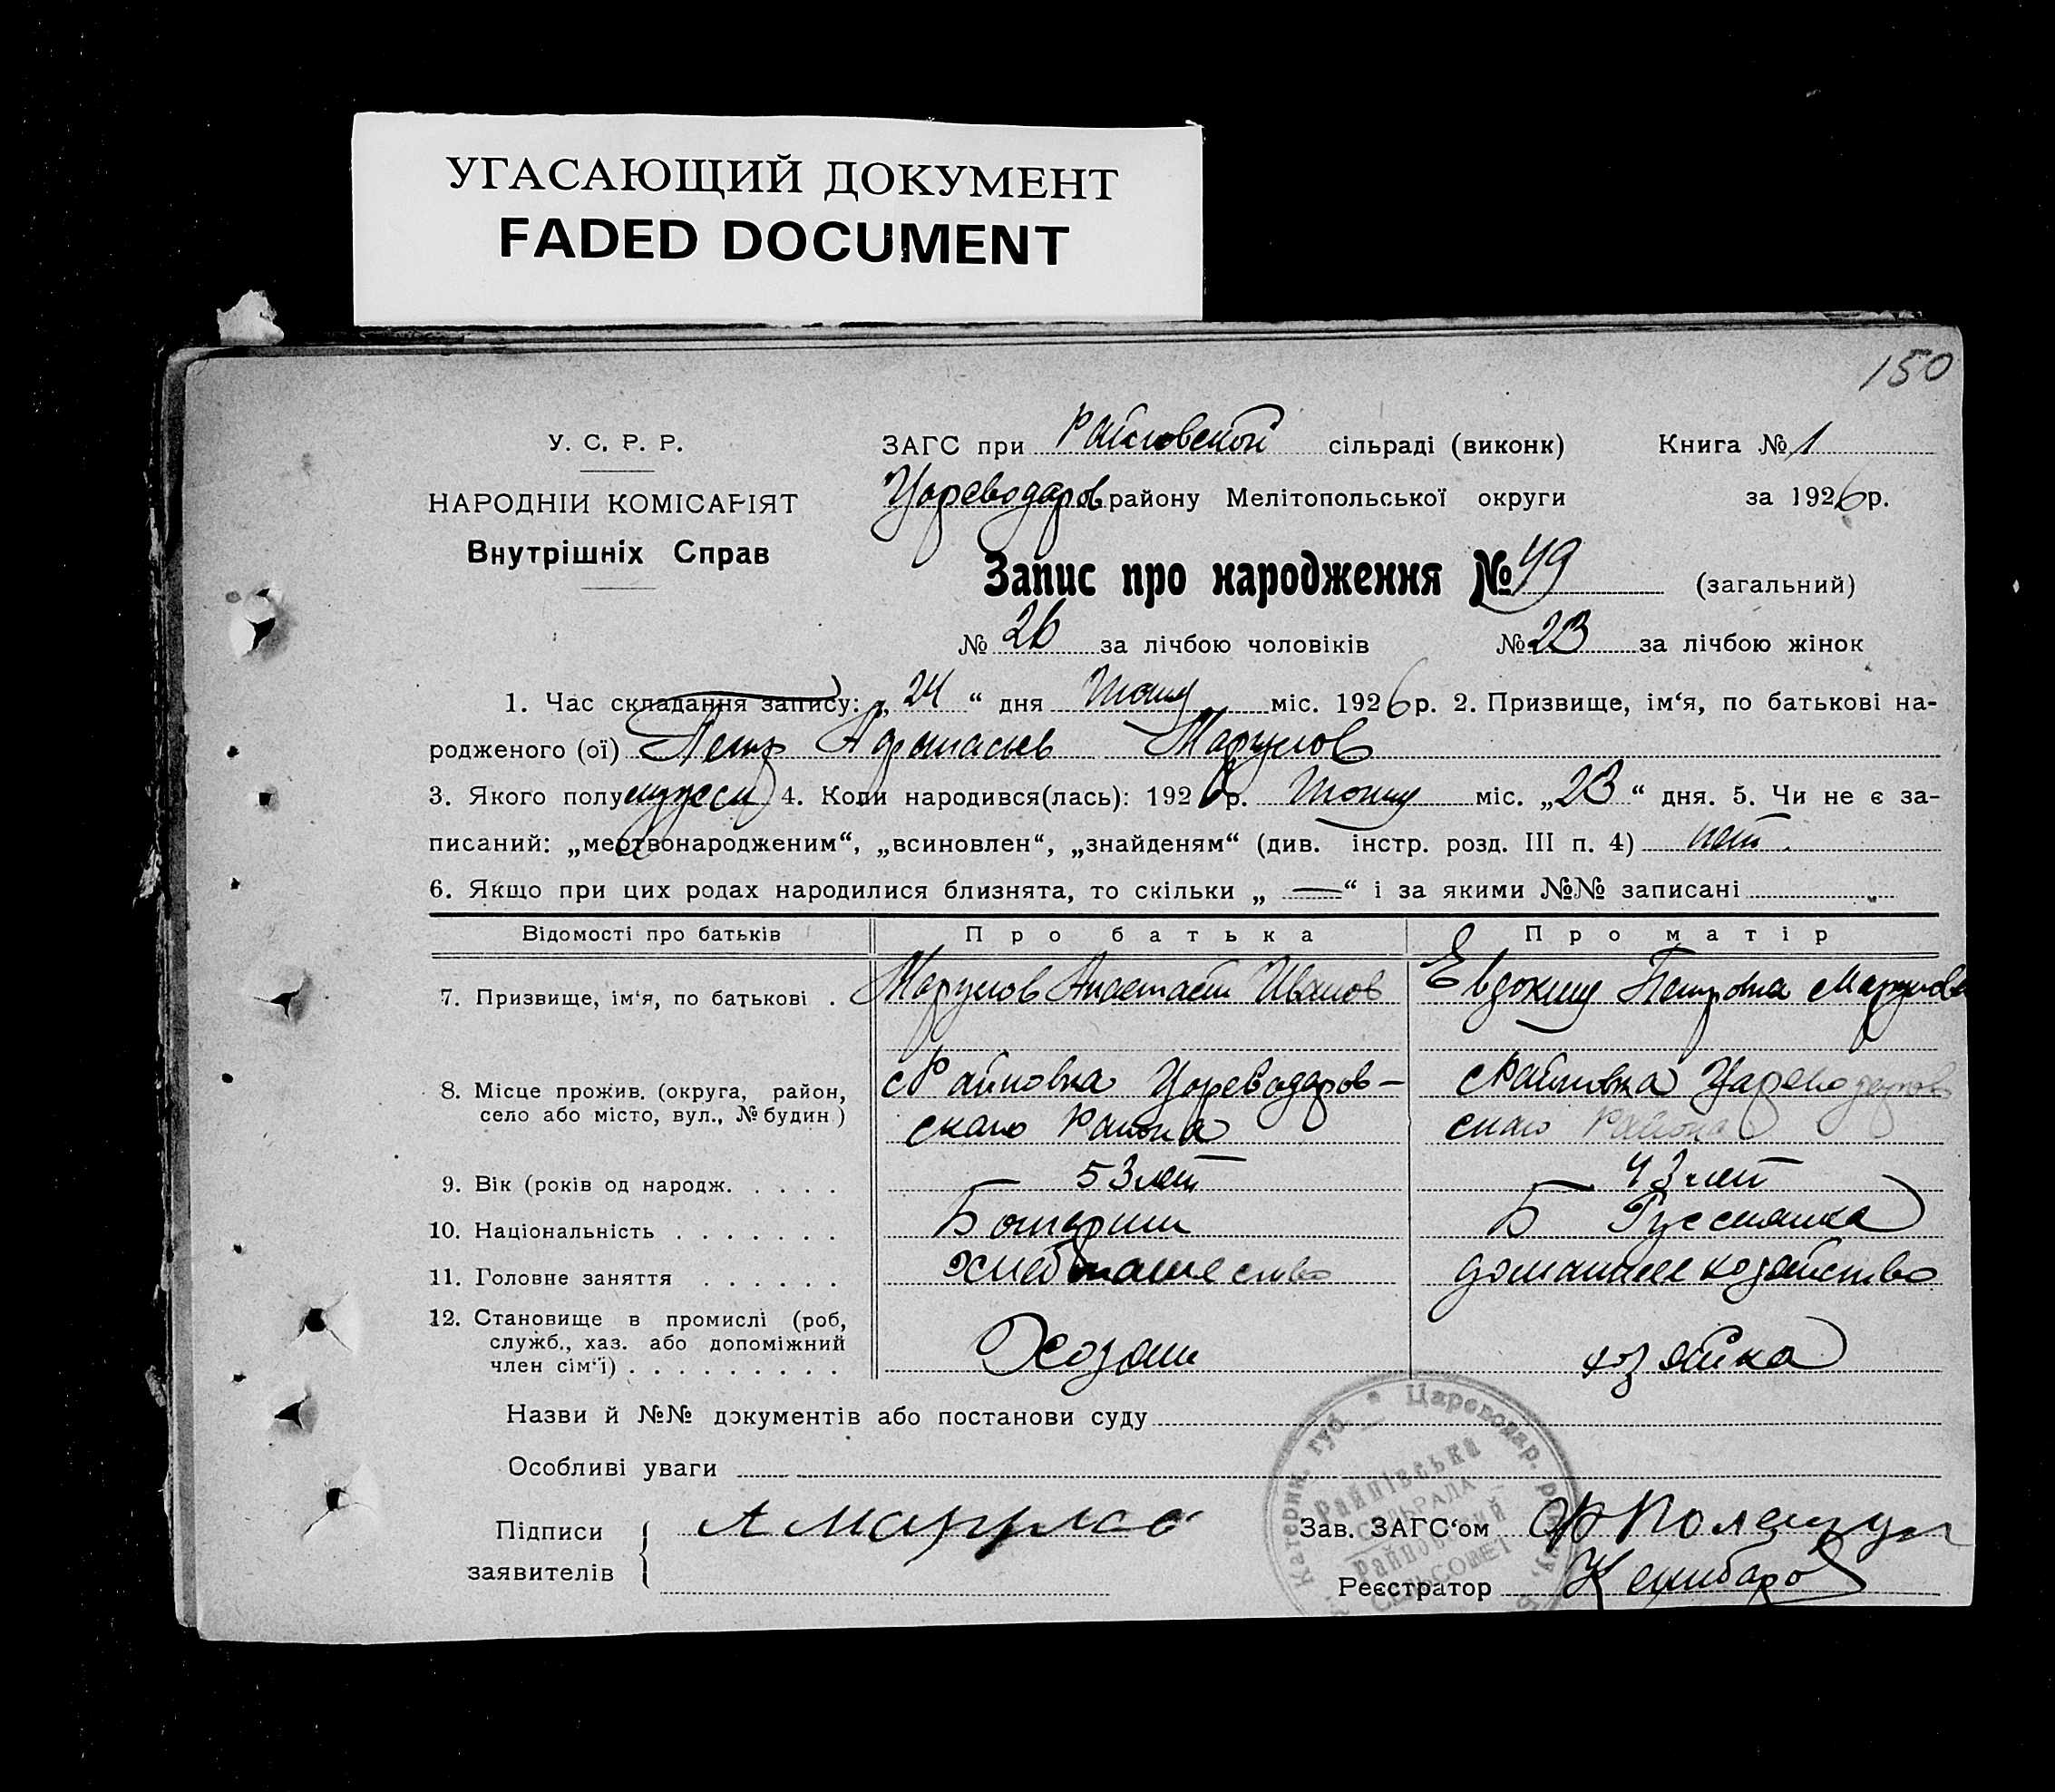 УГАСАЮЩИЙ ДОКУМЕНТ
FADED DOCUMENT
150
У. С. Р. Р.
НАРОДНІЙ КОМІСАРІЯТ
Внутрішніх Справ
ЗАГС при Райновской сільраді (виконк) Книга № 1
Цареводаров району Мелітопольської округи за 1926 р.
Запис про народження № 49 (загальний)
№ 26 за лічбою чоловіків № 23 за лічбою жінок
1. Час складання запису: „ 24 “ дня Июня міс. 1926 р. 2. Призвище, ім‘я, по батькові на-
родженого (ої) Петр Марулов
3. Якого полу мужеск 4. Коли народився(лась): 1926 р. Июня міс. „ 23 “ дня. 5. Чи не є за-
писаний: „мертвонародженим“, „всиновлен“, „знайденям“ (див. інстр. розд. III п. 4) нет.
6. Якщо при цих родах народилися близнята, то скільки „ — “ і за якими №№ записані
Відомості про батьків Про батька Про матір
7. Призвище, ім‘я, по батькові . Марулов Анастасий Иванов Евдокия Петровна Марулова
8. Місце прожив. (округа, район, с Райновка Цареводаров- с Райновка Цареводаров
село або місто, вул., № будин) скаго Района скаго Района
9. Вік (років од народж. . . . . 53 лет 43 лет
10. Національність . . . . . . . Болгарин Б Русскашка
11. Головне заняття . . . . . . Хлебопашество домашнее хозяйство
12. Становище в промислі (роб,
служб., хаз. або допоміжний Хозяин хозяйка
член сім‘ї) . . . . . . . . .
Назви й №№ документів або постанови суду
Особливі уваги
Катерин. губ. * Цареводар. району,
Райнівська
СІЛЬРАДА
Райновский
СЕЛЬСОВЕТ
Підписи А Марулов Зав. ЗАГС‘ом
заявителів Реєстратор